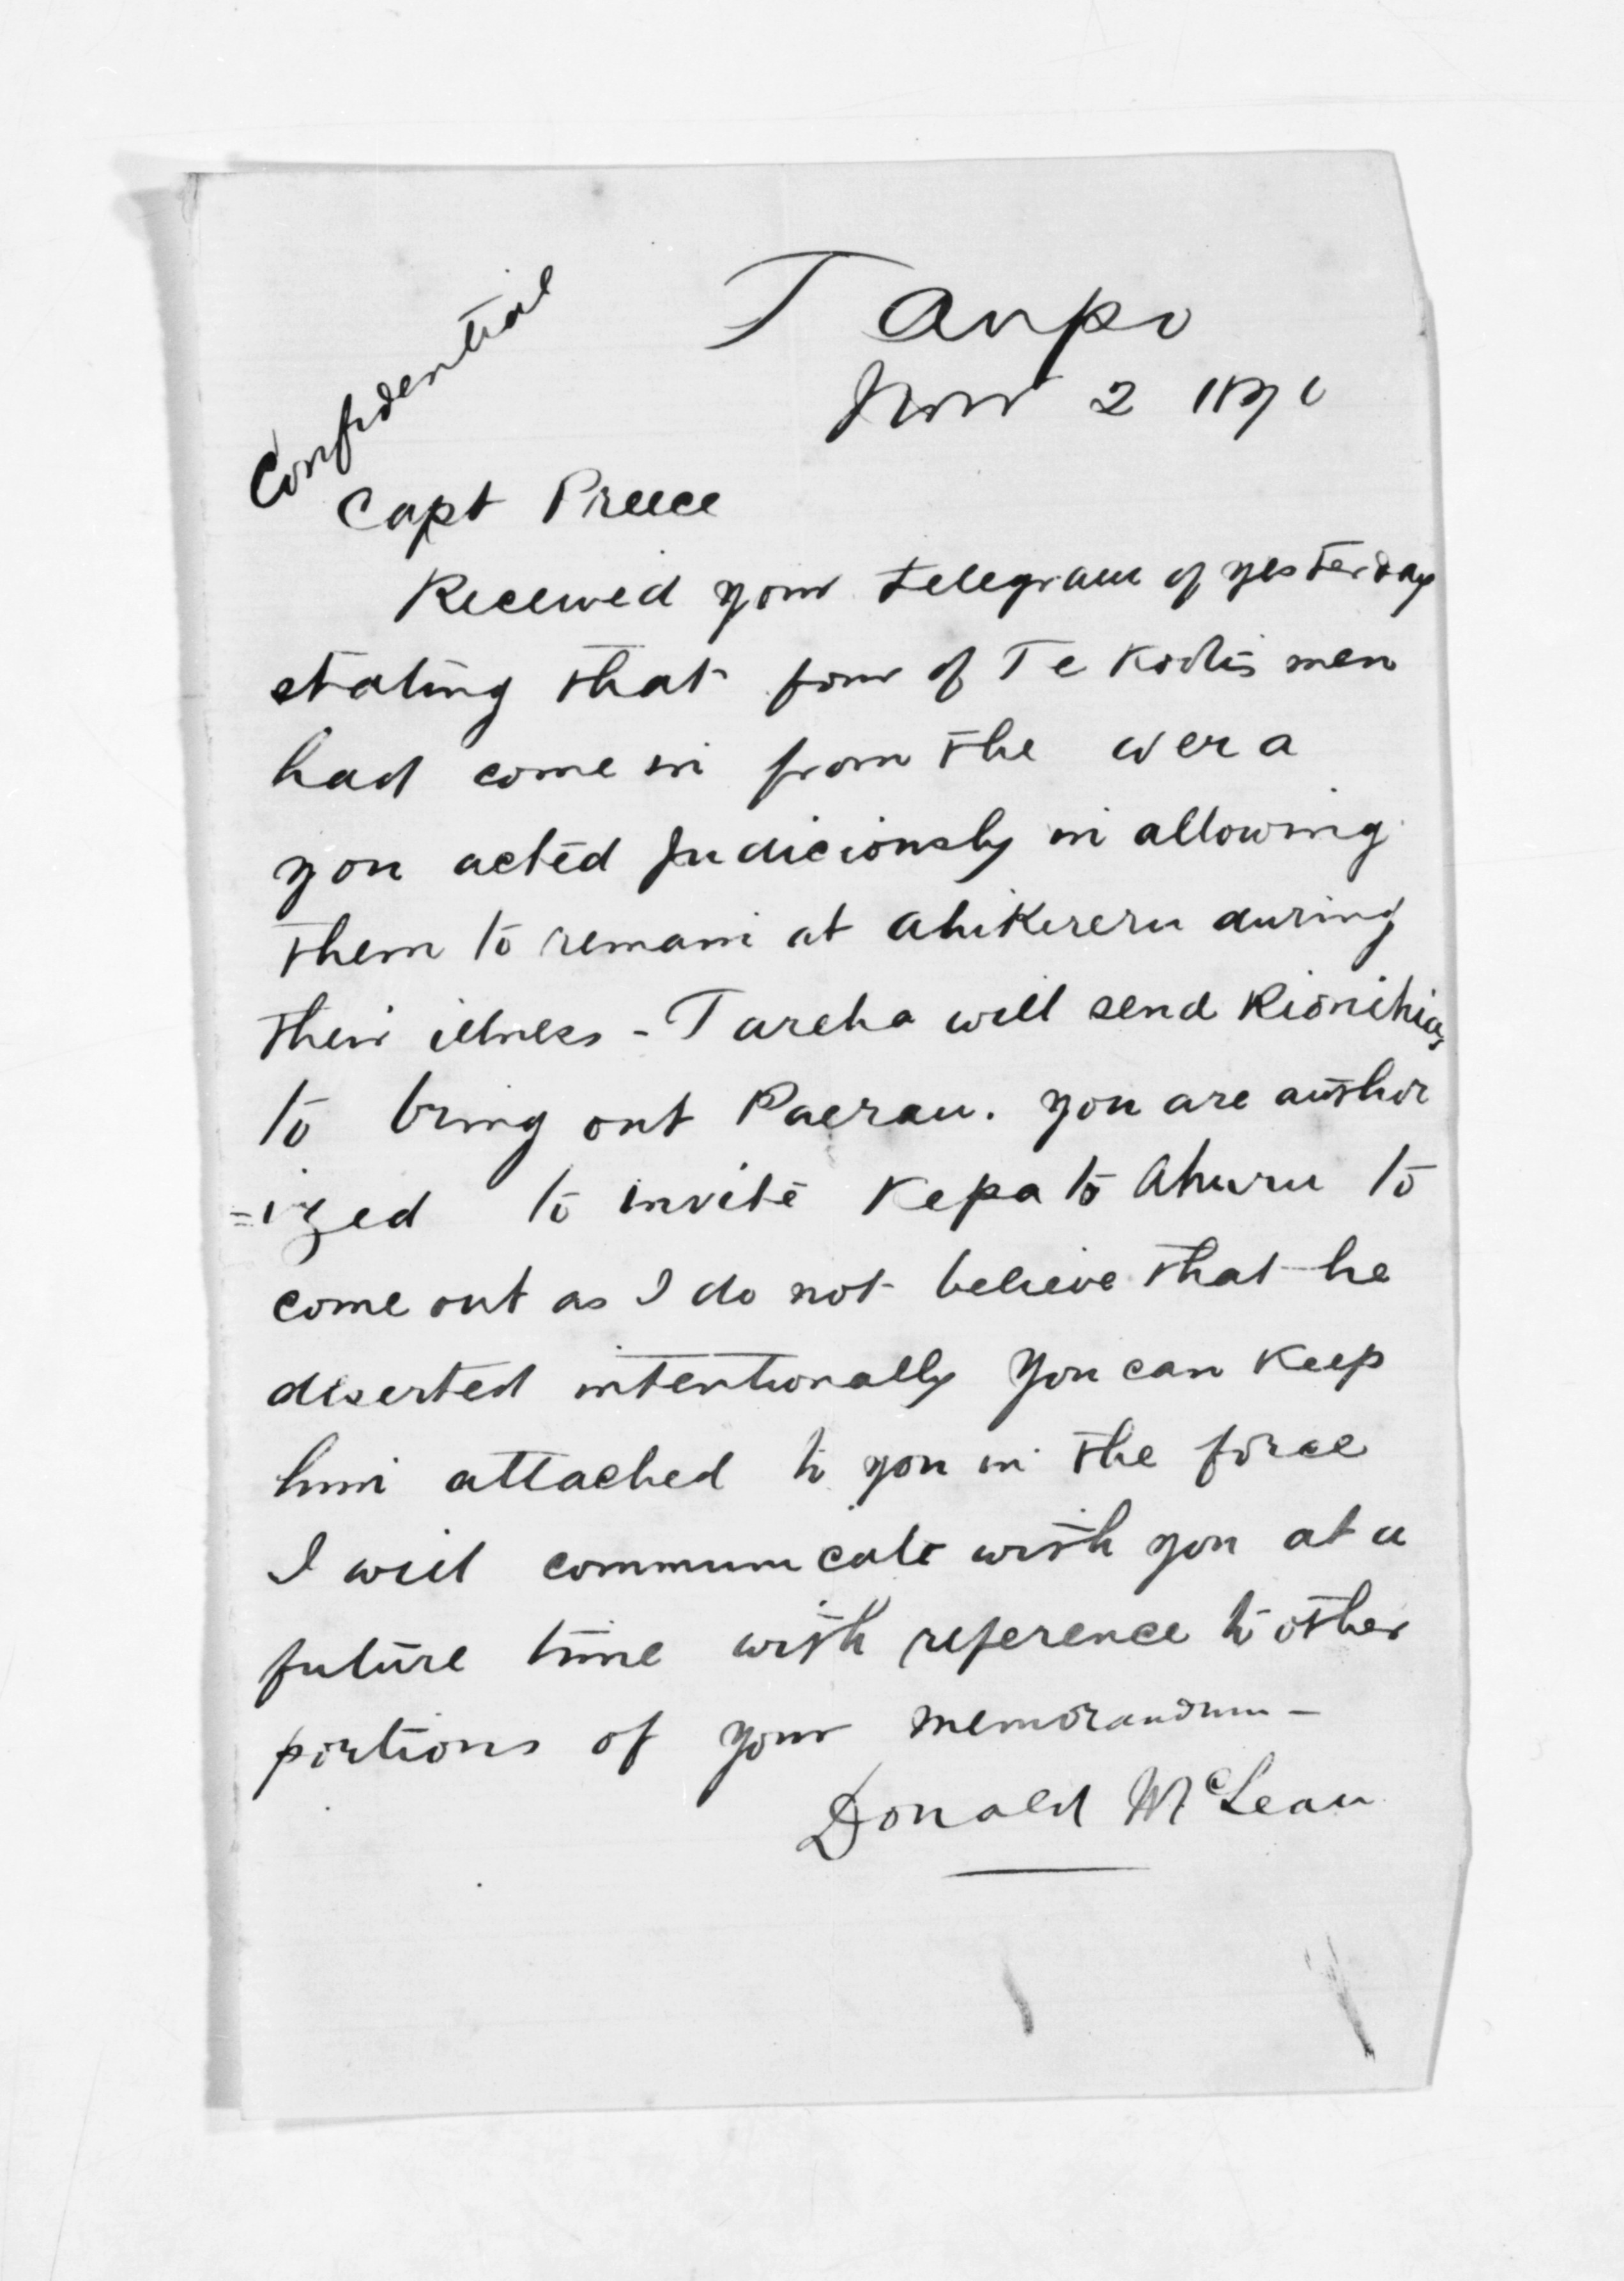 Confidential
Taupo
Nov 2 1871
Capt Preece
Received your telegram of yesterday
stating that four of Te Kootis men
had come in from the wera
you acted judiciously in allowing
them to remain at ahikereru during
their illness - Tareha will send
to bring out Paerau. you are author
=ized to invite Kepa to Ahuru to
come out as I do not believe that he
deserted intentionally You can keep
him attached to you in the force
I will communicate with you at a
future time with reference to other
portions of your memorandum -
Donald McLean